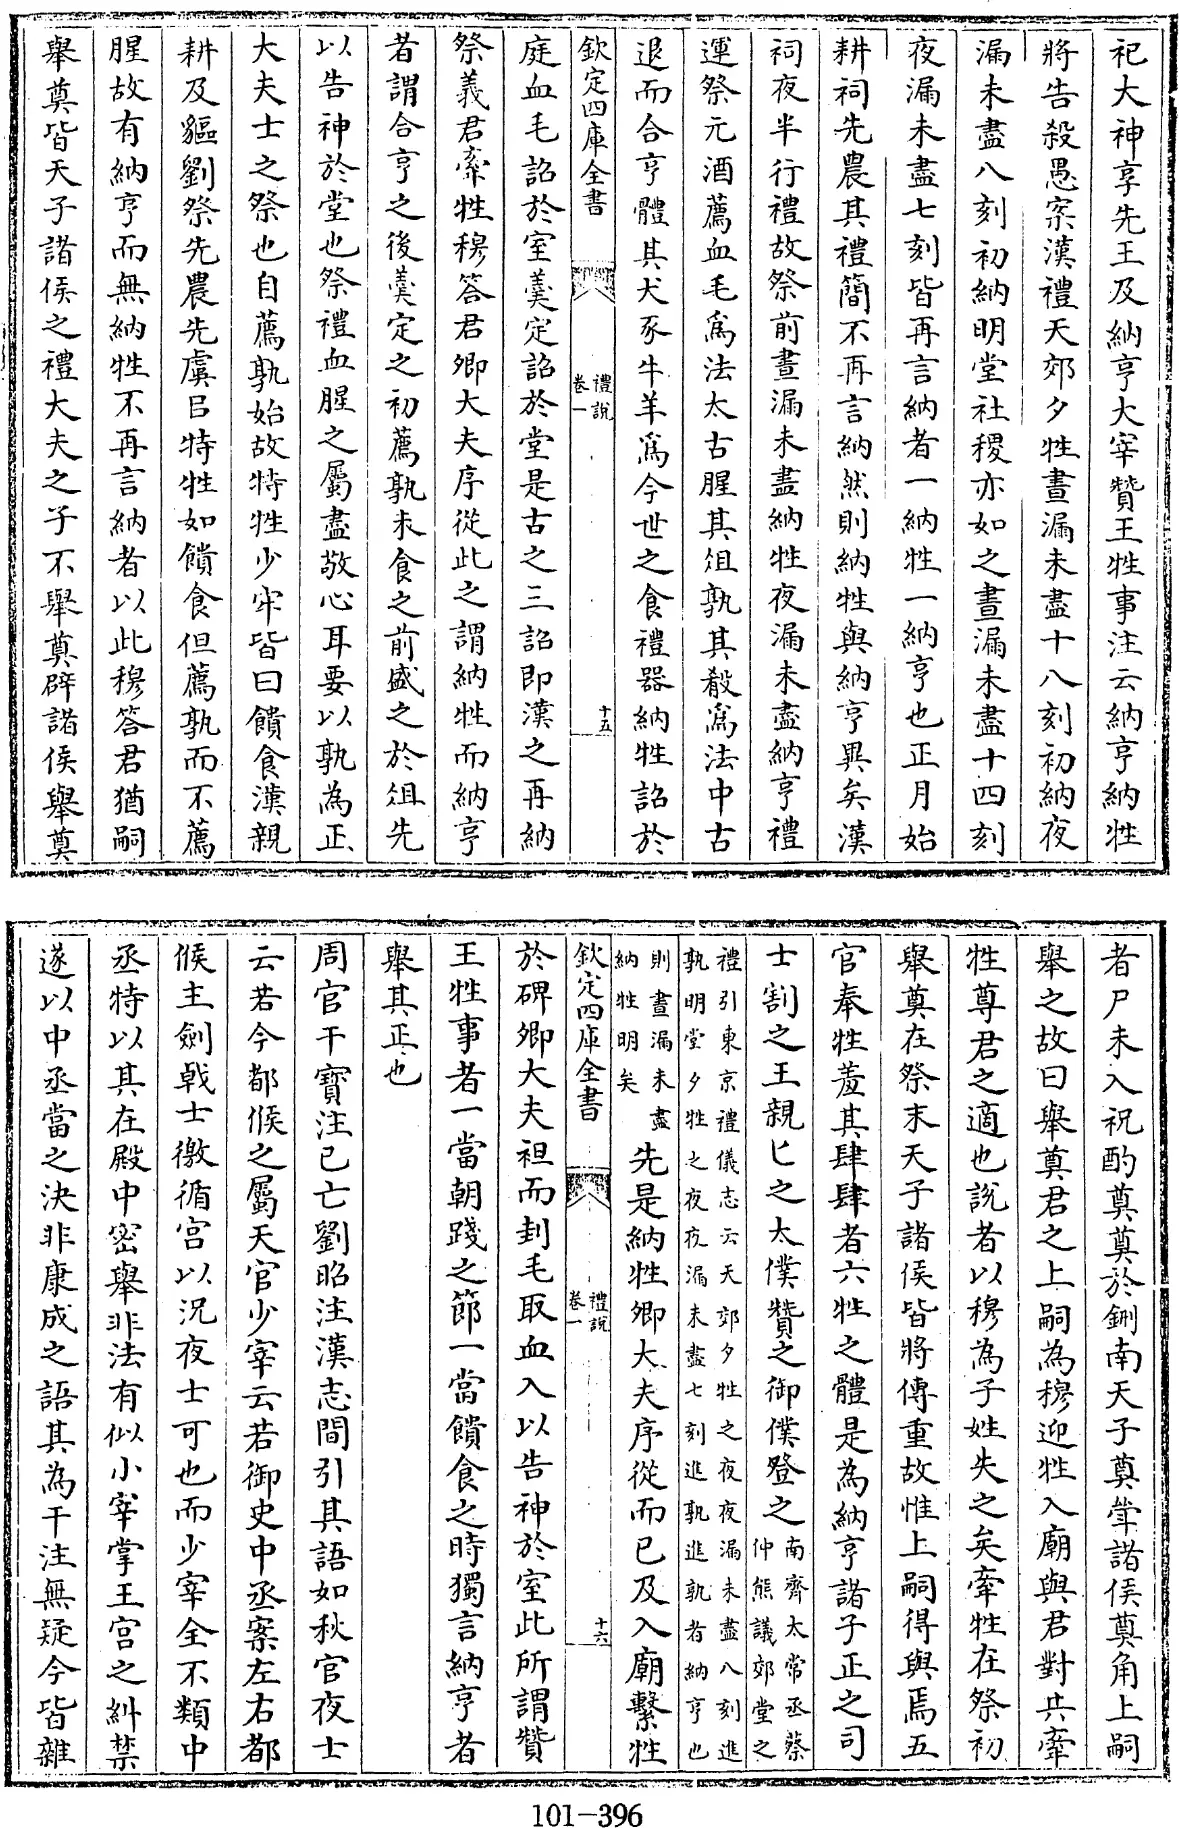 祀大神享先王及納亨大宰贊王牲事注云納亨納牲
將告殺愚案漢禮天郊夕牲晝漏未盡十八刻初納夜
漏未盡八刻初納明堂社稷亦如之晝漏未盡十四刻
夜漏未盡七刻皆再言納者一納牲一納亨也正月始
耕祠先農其禮簡不再言納然則納牲與納亨異矣漢
祠夜半行禮故祭前晝漏未盡納牲夜漏未盡納亨禮
運祭元酒薦血毛爲法太古腥其俎孰其殽爲法中古
退而合亨體其犬豕牛羊爲今世之食禮器納牲詔於
欽定四庫全書
禮說
卷一
十五
庭血毛詔於室羹定詔於堂是古之三詔即漢之再納
祭義君牽牲穆答君卿大夫序從此之謂納牲而納亨
者謂合亨之後羹定之初薦孰未食之前盛之於俎先
以告神於堂也祭禮血腥之屬盡敬心耳要以孰為正
大夫士之祭也自薦孰始故特牲少牢皆曰饋食漢親
耕及貙劉祭先農先虞皆特牲如饋食但薦孰而不薦
腥故有納亨而無納牲不再言納者以此穆答君猶嗣
舉奠皆天子諸侯之禮大夫之子不舉奠辟諸侯舉奠
者尸未入祝酌奠奠於鉶南天子奠斝諸侯奠角上嗣
舉之故曰舉奠君之上嗣為穆迎牲入廟與君對共牽
牲尊君之適也說者以穆為子姓失之矣牽牲在祭初
舉奠在祭末天子諸侯皆將傳重故惟上嗣得與焉五
官奉牲羞其肆肆者六牲之體是為納亨諸子正之司
士割之王親匕之太僕贊之御僕登之南齊太常丞蔡
仲熊議郊堂之
禮引東京禮儀志云天郊夕牲之夜夜漏未盡八刻進
孰明堂夕牲之夜夜漏未盡七刻進孰進孰者納亨也
則晝漏未盡
納牲明矣先是納牲卿大夫序從而已及入廟繫牲
欽定四庫全書
禮說
卷一
十六
於碑卿大夫袒而刲毛取血入以告神於室此所謂贊
王牲事者一當朝踐之節一當饋食之時獨言納亨者
舉其正也
周官干寶注已亡劉昭注漢志間引其語如秋官夜士
云若今都候之屬天官少宰云若御史中丞案左右都
候主劍戟士徼循宫以況夜士可也而少宰全不類中
丞特以其在殿中密舉非法有似小宰掌王宫之糾禁
遂以中丞當之決非康成之語其為干注無疑今皆雜
101-396